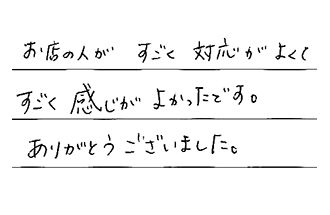 お店の人が すごく 対応が よくて
すごく 感じが よかったです。
ありがとう ございました。